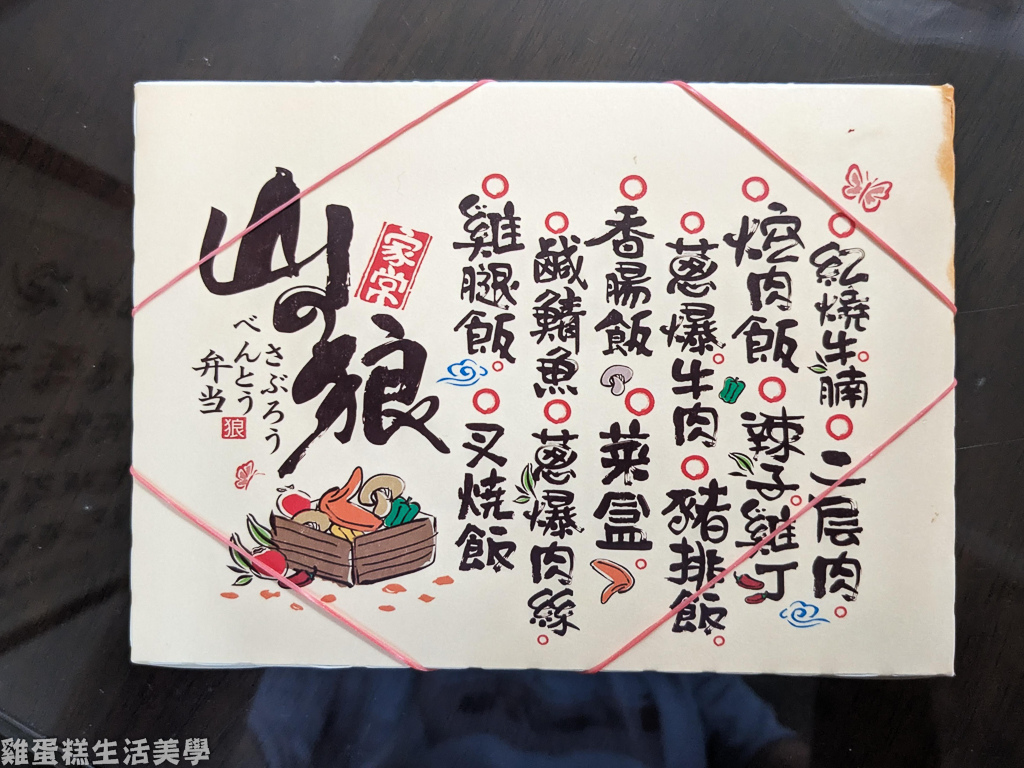 紅燒牛腩
二层肉
焢肉飯
辣子雞丁
蔥爆牛肉
豬排飯
香腸飯
菜盒
鹹鯖魚
蔥爆肉絲
雞腿飯
叉燒飯
家常
山の狼
さぶろう
べんとう
弁当
狼
雞蛋糕生活美學